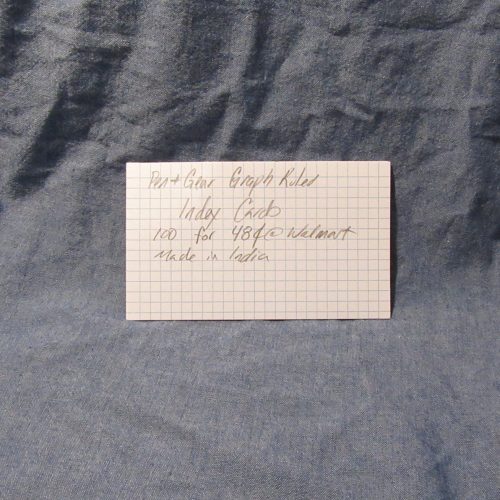 Pen + Gear Graph Ruled
Index Cards
100 for 48¢ @ Walmart
Made in India